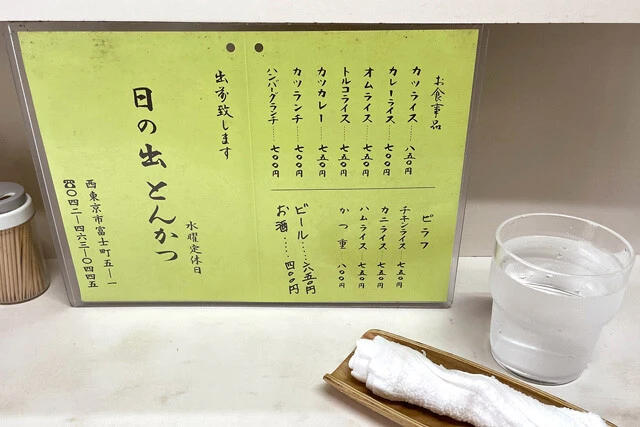 お食事品
カツライス……八五〇円
カレーライス……七〇〇円
オムライス……七五〇円
トルコライス……七五〇円
カツカレー……七五〇円
カツランチ……七〇〇円
ハンバーグランチ……七〇〇円
ピラフ
チキンライス……七五〇円
カニライス……七五〇円
ハムライス……七五〇円
かつ重……八〇〇円
ビール……六五〇円
お酒……四〇〇円
出前致します
水曜定休日
日の出とんかつ
西東京市富士町五ー一
☎〇四二ー四六三ー〇四四五